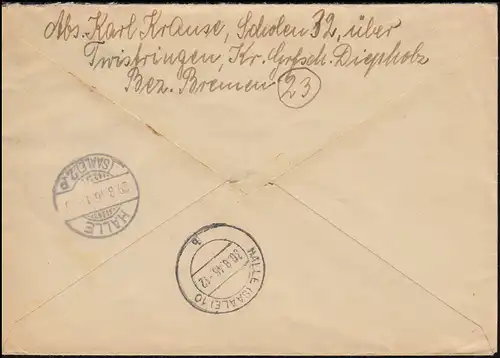 Abs. Karl Krause, Scholen 32, über
Twistringen, Kr. Grfsch. Diepholz
Bez. Bremen 23
HALLE
(SAALE) 2
HALLE (SAALE) 10
20.8.46-12
a